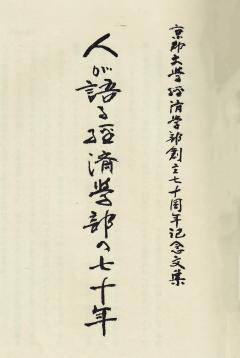 京都大學經済學部創立七十周年記念文集
人が語る經済學部の七十年